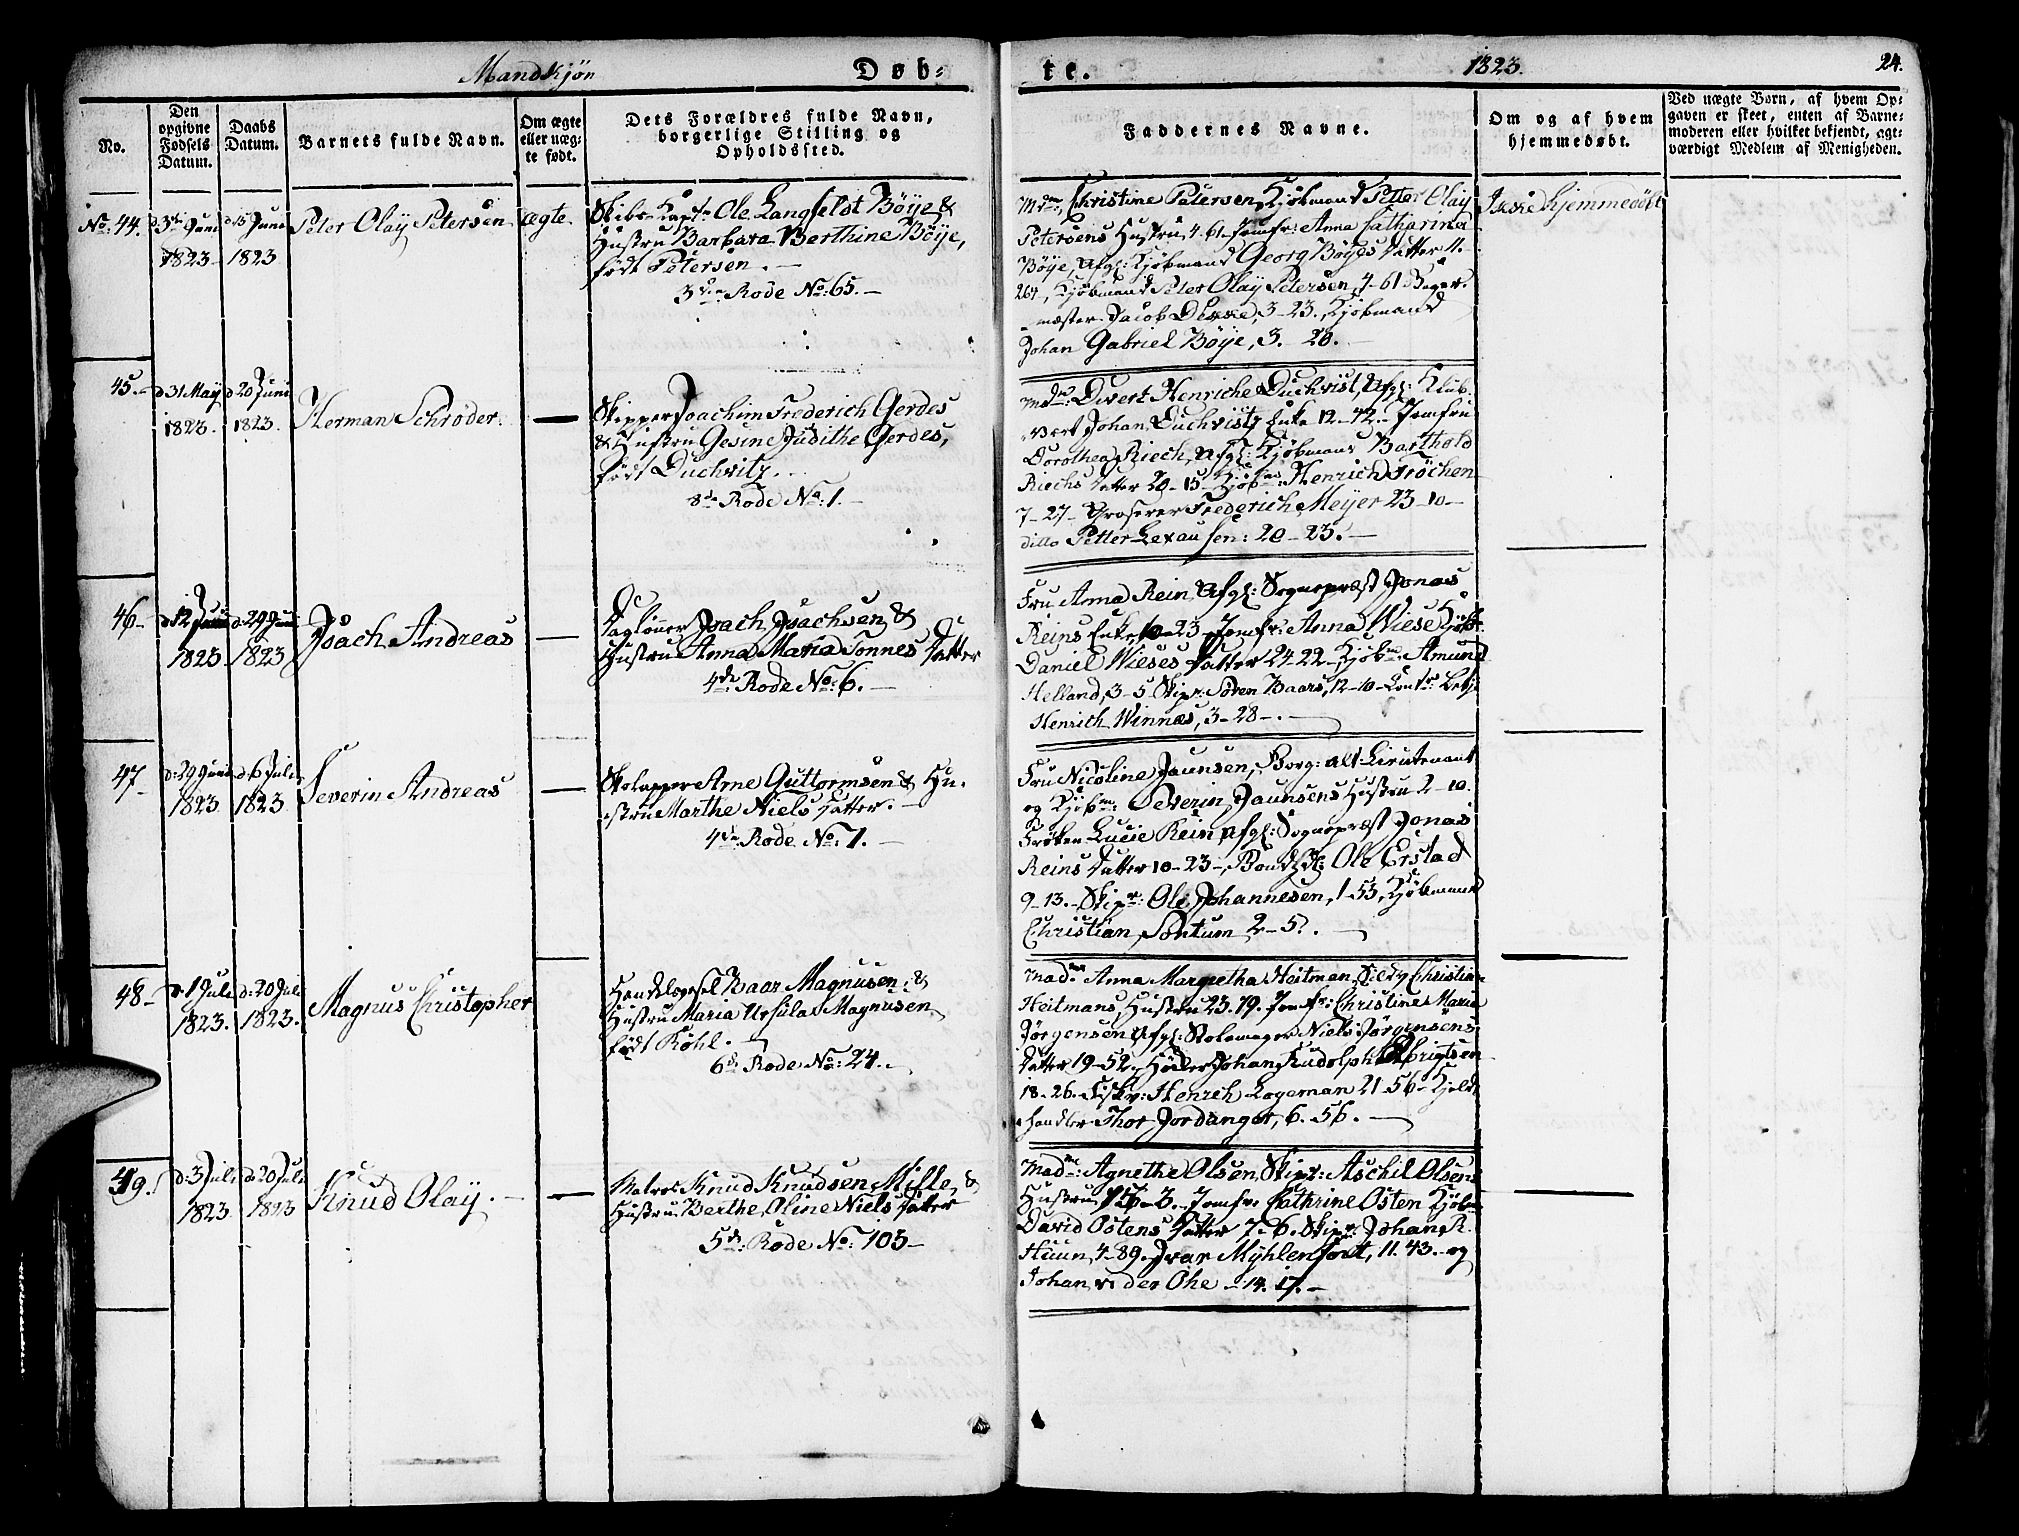 Mandkjøn
Døb-
te.
1823.
24.
No.
Den opgivne Fødsels Datum.
Daabs Datum.
Barnets fulde Navn.
Om ægte eller uægte født.
Dets Forældres fulde Navn, borgerlige Stilling og Opholdssted.
Faddernes Navne.
Om og af hvem hjemmedøbt.
Ved uægte Børn, af hvem Opgaven er skeet, enten af Barnemoderen eller hvilket bekjendt, agtværdigt Medlem af Menigheden.
No: 44.
d 3die Juni
1823
d 15 Juni
1823
Peter Olay Petersen
ægte
Skibs-Kaptn Ole Langfeldt Böye &
Hustru Barbara Berthine Böye,
född Petersen. —
3die Rode No: 65. —
Mdme Christine Petersen, Kjöbmand Petter Olay
Petersens Hustru 4-61. Jomfr: Anna Catharina
Böye, Afgl: Kjöbmand Georg Böyes Datter 11.
264, Kjöbmand Peter Olay Petersen, 4-61 Bager-
mæster Jacob Dekke, 3-23. Kjöbmand
Johan Gabriel Böye, 3. 20.
Ikke hjemmedöbt
45.
d 31 May
1823.
d 20 Juni
1823.
Herman Schröder.
—
Skipper Joachim Frederich Gerdes
& Hustru Gesine Judithe Gerdes,
född Duchvitz.
8de Rode No: 1. —
Mdme: Divert Henriche Duchvist, Afgl: Klub-
vert Johan Duchvistz Enke 12-42. Jomfru
Dorothea Riech, Afgl: Kjöbmand Barthold
Riechs Datter 20-15- Kjöbmd Henrich Fröchen
7-27- Groserer Frederich Meyer 23-10-
ditto Petter Lexau Sen: 20-23. —
46-
d 12 Juni
1823
d: 29 Juni
1823
Isach Andreas
—
Daglönner Isach Isachsen &
Hustru Anna Maria Tonnes Datter
4de Rode No: 6. —
Fru Anna Rein, Afgl: Sognepræst Jonas
Reins Enke, 10-23 Jomfr: Anna Wiese Kjöbm
Daniel Wieses Datter 24-22- Kjöbm: Amund
Helland, 3-5 Skipr: Sören Baars, 12-10-
Henrich Winnæs, 3-28-.
47-
d: 29 Juni
1823
d 6 Juli
1823
Severin Andreas
—
Skolapper Arne Guttormsen & Hu-
stru Marthe Niels Datter. —
4de Rode No: 1. —
Fru Nicoline Jaunsen, Borg: alt-Lieutenant
og Kjöbm: Severin Jaunsens Hustru 2-10.
Fröken Lucie Rein Afgl: Sognepræst Jonas
Reins Datter 10-23-, Ole Erstad
9-13. Skipr: Ole Johannesen, 1-53, Kjöbmand
Christian Sontum 2-5.
48-
d: 1 Juli
1823.
d: 20 Juli
1823.
Magnus Christopher
Baar Magnusen &
Hustru Maria Ursula Magnusen
född Köhl.
6de Rode No: 24.
Madme Anna Margretha Heitman, Christian
Heitmans, Hustru 23. 19. Jomfr: Christine Maria
Jörgensen Afgl: Stolemager Niels Jörgensens
Datter 19-52. Höker Johan Rudolph
18-26. Henrich Logeman 21-56
handler Thor Jordanger, 6. 56. —
49.
d: 3 Juli
1823
d: 20 Juli
1823
Knud Olay. —
—
Matros Knud Knudsen Milde, &
Hustru Berthe Oline Niels Datter
5de: Rode No: 105-
Madme: Agnethe Olsen, Skipr: Aschel Olsens
Hustru 15-3. Jomfr: Cathrine Osten Kjöbm
David Ostens Datter 7-6. Skipr: Johan R.
Huun, 4-89. Ivar Myhlenfort, 11. 43. og
Johan v: der Ohe - 14. 17. —